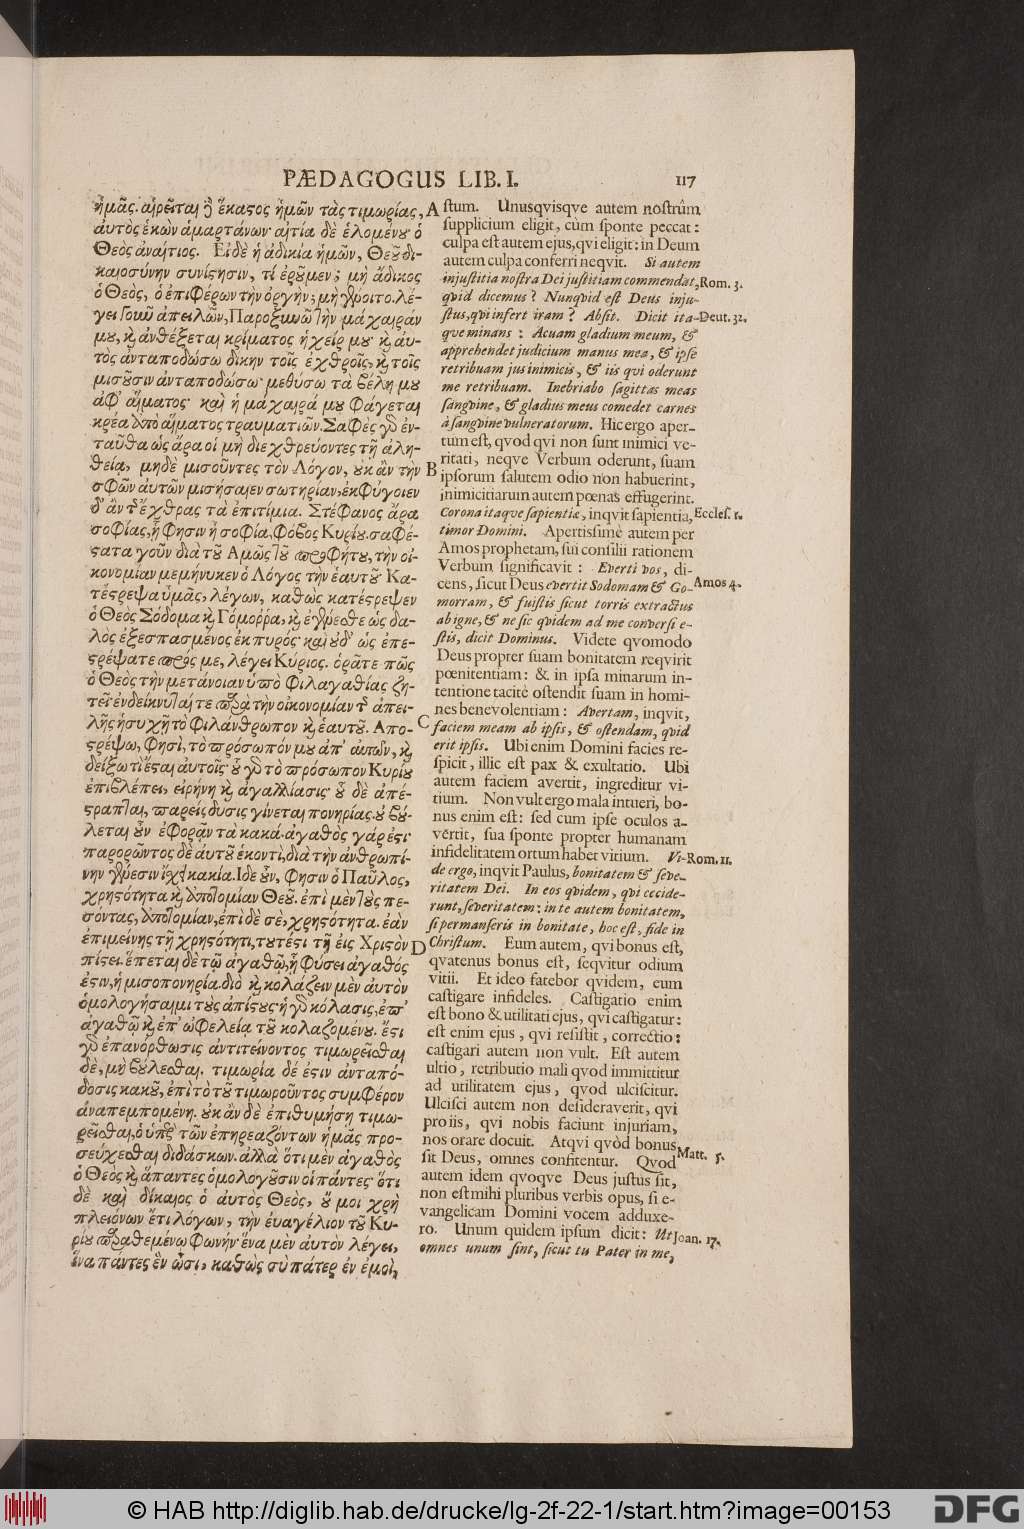 PÆDAGOGUS LIB. I.
117
ἡμᾶς. αἱρεῖται ἕκαστος ἡμῶν τὰς τιμωρίας,
αὐτὸς ἑκὼν ἁμαρτάνων· αἰτία δὲ ἑλομένου· ὁ
Θεὸς ἀναίτιος. Εἰ δὲ ἡ ἀδικία ἡμῶν, Θεοῦ δι-
καιοσύνην συνίστησιν, τί ἐροῦμεν; μὴ ἄδικος
ὁ Θεὸς, ὁ ἐπιφέρων τὴν ὀργήν; μὴ γένοιτο. λέ-
γει γοῦν ἀπειλῶν, Παροξυνῶ τὴν μάχαιράν
μου, καὶ ἀνθέξεται κρίματος ἡ χείρ μου· καὶ ἀν-
τὸς ἀνταποδώσω δίκην τοῖς ἐχθροῖς, καὶ τοῖς
μισοῦσιν ἀνταποδώσω· μεθύσω τὰ βέλη μου
ἀφ' αἵματος· καὶ ἡ μάχαιρά μου φάγεται
κρέα ἀπὸ αἵματος τραυματιῶν. Σαφὲς γὰρ ἐν-
ταῦθα ὡς ἄρα οἱ μὴ διεχθρεύοντες τῇ ἀλη-
θείᾳ, μηδὲ μισοῦντες τὸν Λόγον, οὐκ ἂν τὴν
σφῶν αὐτῶν μισήσαιεν σωτηρίαν, ἐκφύγοιεν
δ' ἂν τῆς ἔχθρας τὰ ἐπιτίμια. Στέφανος ἄρα
σοφίας, ᾗ φησιν ἡ σοφία, φόβος Κυρίου. σαφέ-
στατα γοῦν διὰ τοῦ Ἀμὼς τοῦ προφήτου, τὴν οἰ-
κονομίαν μεμήνυκεν ὁ Λόγος τὴν ἑαυτοῦ· Κα-
τέστρεψα ὑμᾶς, λέγων, καθὼς κατέστρεψεν
ὁ Θεὸς Σόδομα καὶ Γόμορρα, καὶ ἐγένεσθε ὡς δα-
λὸς ἐξεσπασμένος ἐκ πυρός· καὶ οὐδ' ὡς ἐπε-
στρέψατε πρός με, λέγει Κύριος. ὁρᾶτε πῶς
ὁ Θεὸς τὴν μετάνοιαν ὑπὸ φιλαγαθίας ζη-
τεῖ· ἐνδείκνυταί τε παρὰ τὴν οἰκονομίαν τῆς ἀπει-
λῆς ἡσυχῇ τὸ φιλάνθρωπον τὸ ἑαυτοῦ. Ἀπο-
στρέψω, φησὶ, τὸ πρόσωπόν μου ἀπ' αὐτῶν, καὶ
δείξω τί ἔσται αὐτοῖς· οὗ γὰρ τὸ πρόσωπον Κυρίου
ἐπιβλέπει, εἰρήνη καὶ ἀγαλλίασις· οὗ δὲ ἀπέ-
στραπται, παρείσδυσις γίνεται πονηρίας. οὐ βού-
λεται οὖν ἐφορᾷν τὰ κακά. ἀγαθὸς γάρ ἐστι·
παρορῶντος δὲ αὐτοῦ ἑκοντὶ, διὰ τὴν ἀνθρωπί-
νην γένεσιν κακία. Ἴδε οὖν, φησιν ὁ Παῦλος,
χρηστότητα καὶ ἀποτομίαν Θεοῦ. ἐπὶ μὲν τοὺς πε-
σόντας, ἀποτομίαν, ἐπὶ δὲ σὲ, χρηστότητα. ἐὰν
ἐπιμείνῃς τῇ χρηστότητι, τουτέστι τῇ εἰς Χριστὸν
πίστει. ἕπεται δὲ τῷ ἀγαθῷ, ᾗ φύσει ἀγαθός
ἐστιν, ἡ μισοπονηρία. διὸ καὶ κολάζειν μὲν αὐτὸν
ὁμολογήσαιμι τοὺς ἀπίστους· ἡ γὰρ κόλασις, ἐπ'
ἀγαθῷ καὶ ἐπ' ὠφελείᾳ τοῦ κολαζομένου. ἔστι
γὰρ ἐπανόρθωσις ἀντιτείνοντος· τιμωρεῖσθαι
δὲ, μὴ βούλεσθαι. τιμωρία δέ ἐστιν ἀνταπό-
δοσις κακοῦ, ἐπὶ τὸ τοῦ τιμωροῦντος συμφέρον
ἀναπεμπομένη. οὐκ ἂν δὲ ἐπιθυμήσῃ τιμω-
ρεῖσθαι, ὁ ὑπὲρ τῶν ἐπηρεαζόντων ἡμᾶς προ-
σεύχεσθαι διδάσκων. ἀλλὰ ὅτι μὲν ἀγαθὸς
ὁ Θεὸς καὶ ἅπαντες ὁμολογοῦσιν οἱ πάντες· ὅτι
δὲ καὶ δίκαιος ὁ αὐτὸς Θεὸς, οὔ μοι χρὴ
πλειόνων ἔτι λόγων, τὴν εὐαγέλιον τοῦ Κυ-
ρίου παραθεμένῳ φωνήν· ἕνα μὲν αὐτὸν λέγει,
ἵνα πάντες ἓν ὦσι, καθὼς σὺ πάτερ ἐν ἐμοὶ,
A
B
C
D
stum. Unusqvisqve autem nostrûm
supplicium eligit, cùm sponte peccat:
culpa est autem ejus, qvi eligit: in Deum
autem culpa conferri neqvit. Si autem
injustitia nostra Dei justitiam commendat, Rom. 3.
qvid dicemus? Nunqvid est Deus inju-
stus, qvi infert iram? Absit. Dicit ita- Deut. 32.
qve minans: Acuam gladium meum, &
apprehendet judicium manus mea, & ipse
retribuam jus inimicis, & iis qvi oderunt
me retribuam. Inebriabo sagittas meas
sangvine, & gladius meus comedet carnes
à sangvine vulneratorum. Hic ergo aper-
tum est, qvod qvi non sunt inimici ve-
ritati, neqve Verbum oderunt, suam
ipsorum salutem odio non habuerint,
inimicitiarum autem pœnas effugerint.
Corona itaqve sapientiæ, inqvit sapientia, Eccles. 1.
timor Domini. Apertissimè autem per
Amos prophetam, sui consilii rationem
Verbum significavit: Everti vos, di-
cens, sicut Deus evertit Sodomam & Go- Amos 4.
morram, & fuistis sicut torris extractus
ab igne, & ne sic qvidem ad me conversi e-
stis, dicit Dominus. Videte qvomodo
Deus propter suam bonitatem reqvirit
pœnitentiam: & in ipsa minarum in-
tentione tacitè ostendit suam in homi-
nes benevolentiam: Avertam, inqvit,
faciem meam ab ipsis, & ostendam, qvid
erit ipsis. Ubi enim Domini facies re-
spicit, illic est pax & exultatio. Ubi
autem faciem avertit, ingreditur vi-
tium. Non vult ergo mala intueri, bo-
nus enim est: sed cum ipse oculos a-
vertit, sua sponte propter humanam
infidelitatem ortum habet vitium. Vi- Rom. 11.
de ergo, inqvit Paulus, bonitatem & seve-
ritatem Dei. In eos qvidem, qvi cecide-
runt, severitatem: in te autem bonitatem,
si permanseris in bonitate, hoc est, fide in
Christum. Eum autem, qvi bonus est,
qvatenus bonus est, seqvitur odium
vitii. Et ideo fatebor qvidem, eum
castigare infideles. Castigatio enim
est bono & utilitati ejus, qvi castigatur:
est enim ejus, qvi resistit, correctio:
castigari autem non vult. Est autem
ultio, retributio mali qvod immittitur
ad utilitatem ejus, qvod ulciscitur.
Ulcisci autem non desideraverit, qvi
pro iis, qvi nobis faciunt injuriam,
nos orare docuit. Atqvi qvòd bonus Matt. 5.
sit Deus, omnes confitentur. Qvod
autem idem qvoqve Deus justus sit,
non est mihi pluribus verbis opus, si e-
vangelicam Domini vocem adduxe-
ro. Unum quidem ipsum dicit: Ut Joan. 17.
omnes unum sint, sicut tu Pater in me,
© HAB http://diglib.hab.de/drucke/lg-2f-22-1/start.htm?image=00153
DFG